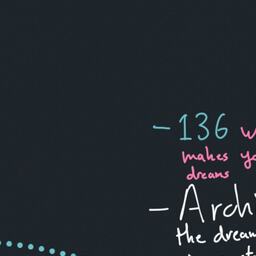 -136
makes
dreams
- Arch
the dream